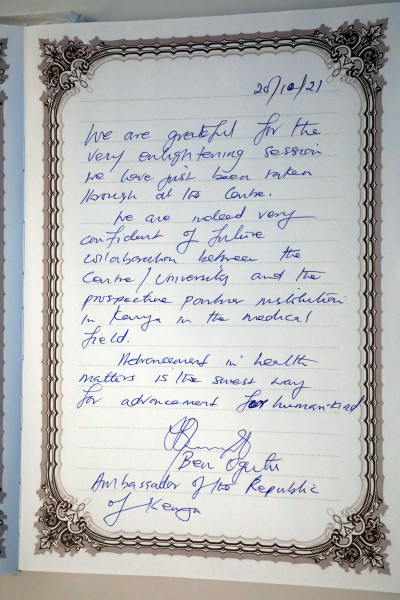 20/10/21
We are grateful for the
very enlightening session
we have just been taken
through at the Centre.
We are indeed very
confident of future
collaboration between the
Centre/University and the
prospective partner institution
in Kenya in the medical
field.
Advancement in health
matters is the surest way
for advancement for human-kind
Ben Ogutu
Ambassador of the Republic
of Kenya